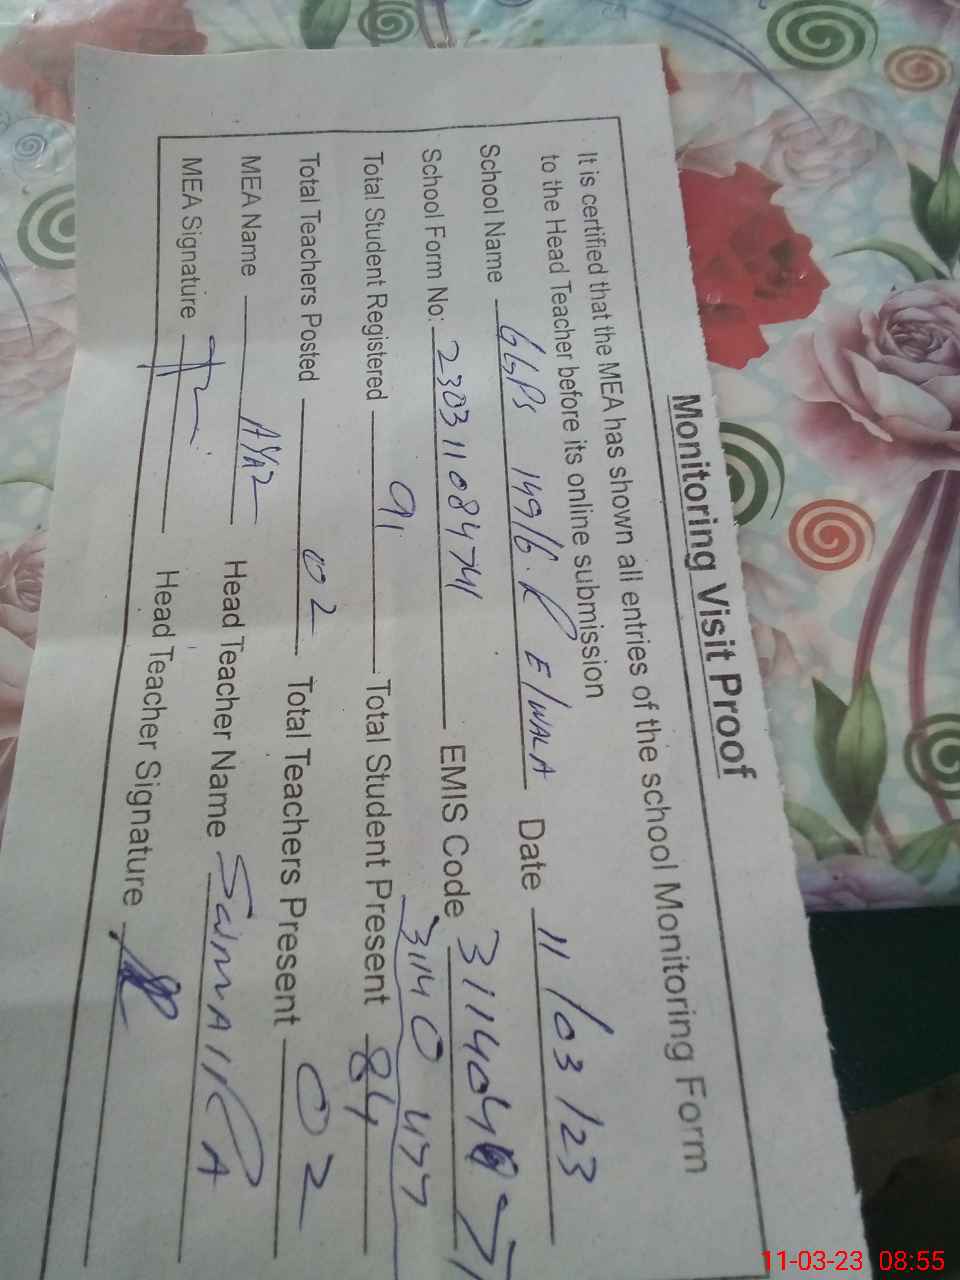 Monitoring Visit Proof
It is certified that the MEA has shown all entries of the school Monitoring Form
to the Head Teacher before its online submission
School Name GGPS 149/6.R E/WALA Date 11/03/23
School Form No: 230311084741 EMIS Code 3114047
31140477
Total Student Registered 91 Total Student Present 84
Total Teachers Posted 02 Total Teachers Present 02
MEA Name AYAZ Head Teacher Name
MEA Signature Head Teacher Signature
11-03-23 08:55